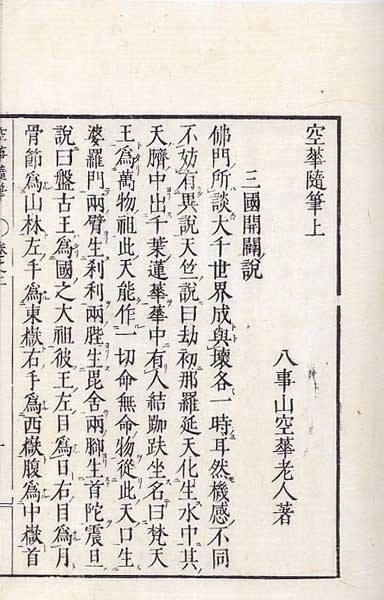 空華隨筆上
八事山空華老人著
三國開闢說
佛門所談大千世界成與壞各一時耳然機感不同
不妨有異說天竺說曰劫初那羅延天化生水中其
天臍中出千葉蓮華華中有人結跏趺坐名曰梵天
王爲萬物祖此天能作一切命無命物從此天口生
婆羅門兩臂生刹利兩䏶生毘舍兩脚生首陀震旦
說曰盤古王爲國之大祖彼王左目爲日右目爲月
骨節爲山林左手爲東嶽右手爲西嶽腹爲中嶽首